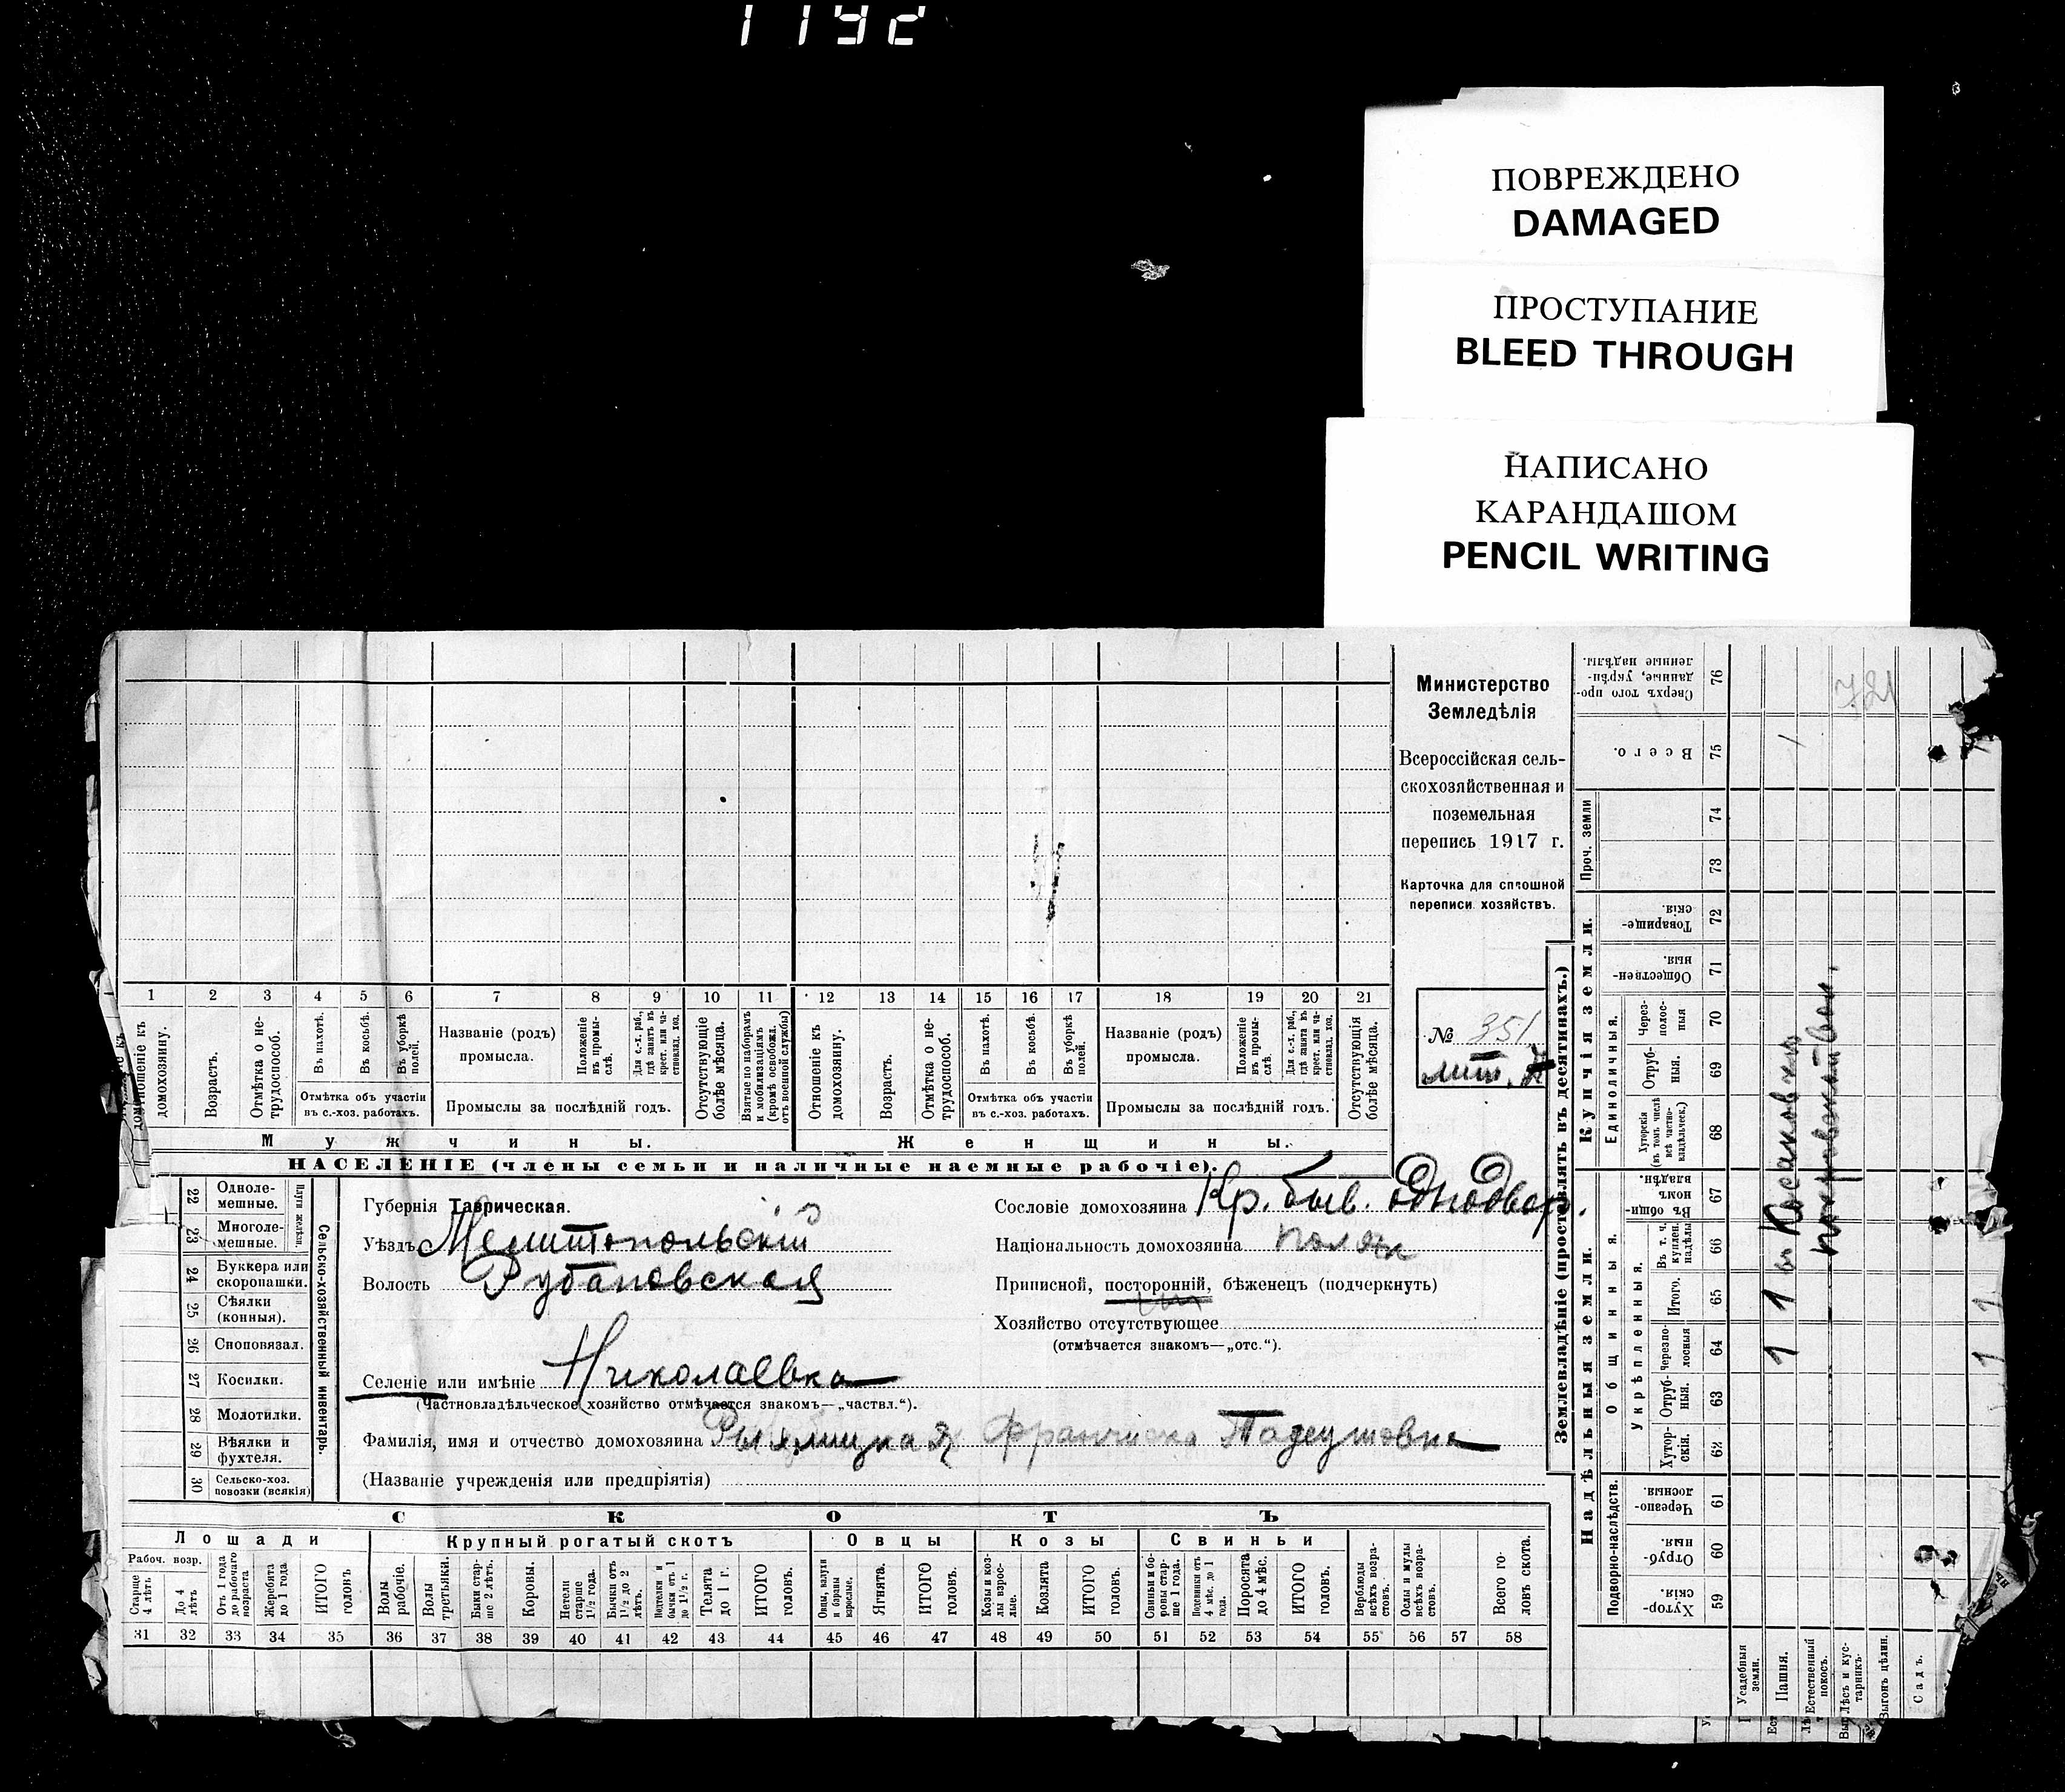 1192
ПОВРЕЖДЕНО
DAMAGED
ПРОСТУПАНИЕ
BLEED THROUGH
НАПИСАНО
КАРАНДАШОМ
PENCIL WRITING
Министерство
Земледѣлія
Всероссійская сель-
скохозяйственная и
поземельная
перепись 1917 г.
Карточка для сплошной
переписи хозяйствъ.
№ 351
лит. А
1 2 3 4 5 6 7 8 9 10 11 12 13 14 15 16 17 18 19 20 21
Отношеніе къ домохозяину.
Возрастъ.
Отмѣтка о не-трудоспособ.
Въ пахотѣ.
Въ косьбѣ.
Въ уборкѣ полей.
Отмѣтка объ участіи
въ с.-хоз. работахъ.
Названіе (родъ)
промысла.
Положеніе въ промы-слѣ.
Для с.-х. раб., гдѣ занятъ въ крест. или ча-стновлад. хоз.
Промыслы за послѣдній годъ.
Отсутствующіе болѣе мѣсяца.
Взятые по наборамъ и мобилизаціямъ (кромѣ освобожд. отъ военной службы)
Отношеніе къ домохозяину.
Возрастъ.
Отмѣтка о не-трудоспособ.
Въ пахотѣ.
Въ косьбѣ.
Въ уборкѣ полей.
Отмѣтка объ участіи
въ с.-хоз. работахъ.
Названіе (родъ)
промысла.
Положеніе въ промы-слѣ.
Для с.-х. раб., гдѣ занята въ крест. или ча-стновлад. хоз.
Промыслы за послѣдній годъ.
Отсутствующія болѣе мѣсяца.
Мужчины. Женщины.
НАСЕЛЕНІЕ (члены семьи и наличные наемные рабочіе).
22 Одноле-мешные.
23 Многоле-мешные.
Плуги желѣзн.
24 Буккера или скоропашки.
25 Сѣялки (конныя).
26 Сноповязал.
27 Косилки.
28 Молотилки.
29 Вѣялки и фухтеля.
30 Сельско-хоз. повозки (всякія)
Сельско-хозяйственный инвентарь.
Губернія Таврическая.
Уѣздъ Мелитопольскій
Волость Рубановская
Селеніе или имѣніе Николаевка
(Частновладѣльческое хозяйство отмѣчается знакомъ—„частвл.“).
Фамилія, имя и отчество домохозяина Франчиска Тадеушовна
(Названіе учрежденія или предпріятія)
Сословіе домохозяина Кр. быв. однодвор.
Національность домохозяина поляк
Приписной, посторонній, бѣженецъ (подчеркнуть)
Хозяйство отсутствующее
(отмѣчается знакомъ—„отс.“).
СКОТЪ
Лошади Крупный рогатый скотъ Овцы Козы Свиньи
Рабоч. возр.
Старше 4 лѣтъ
До 4 лѣтъ
Отъ 1 года до рабочаго возраста
Жеребята до 1 года
ИТОГО головъ
Волы рабочіе.
Волы третьяки.
Быки стар-ше 2 лѣтъ.
Коровы.
Нетели старше 1½ года.
Бычки отъ 1½ до 2 лѣтъ.
Подтелки и бычки отъ 1 до 1½ г.
Телята до 1 г.
ИТОГО головъ.
Овцы, валухи и бараны взрослые.
Ягнята.
ИТОГО головъ.
Козы и коз-лы взрос-лые.
Козлята
ИТОГО головъ.
Свиньи и бо-ровы стар-ше 1 года.
Подсвинки отъ 4 мѣс. до 1 года.
Поросята до 4 мѣс.
ИТОГО головъ.
Верблюды всѣхъ возра-стовъ.
Ослы и мулы всѣхъ возра-стовъ.
Всего го-ловъ скота.
31 32 33 34 35 36 37 38 39 40 41 42 43 44 45 46 47 48 49 50 51 52 53 54 55 56 57 58
Землевладѣніе (проставлять въ десятинахъ.)
Надѣльныя земли. Купчія земли. Проч. земли
Подворно-наслѣдств.
Общинныя.
Укрѣпленныя.
Единоличныя.
Хутор-скія 59
Отруб-ныя 60
Черезпо-лосныя 61
Хутор-скія. 62
Отруб-ныя. 63
Черезпо-лосныя 64
Итого. 65
Въ т. ч. куплен. надѣлы 66
Въ общи-номъ владѣн. 67
Хуторскія (въ томъ числѣ всѣ частно-владѣльческ.) 68
Отруб-ныя. 69
Через-полос-ныя 70
Обществен-ныя. 71
Товарище-скія. 72
73
74
Всего. 75
Сверхъ того про-данные, укрѣп-ленные надѣлы. 76
Усадебныя земли.
Пашня.
Естественный покосъ.
Лѣсъ и кус-тарникъ.
Выгонъ цѣлин.
Садъ.
1 1
1 1
721